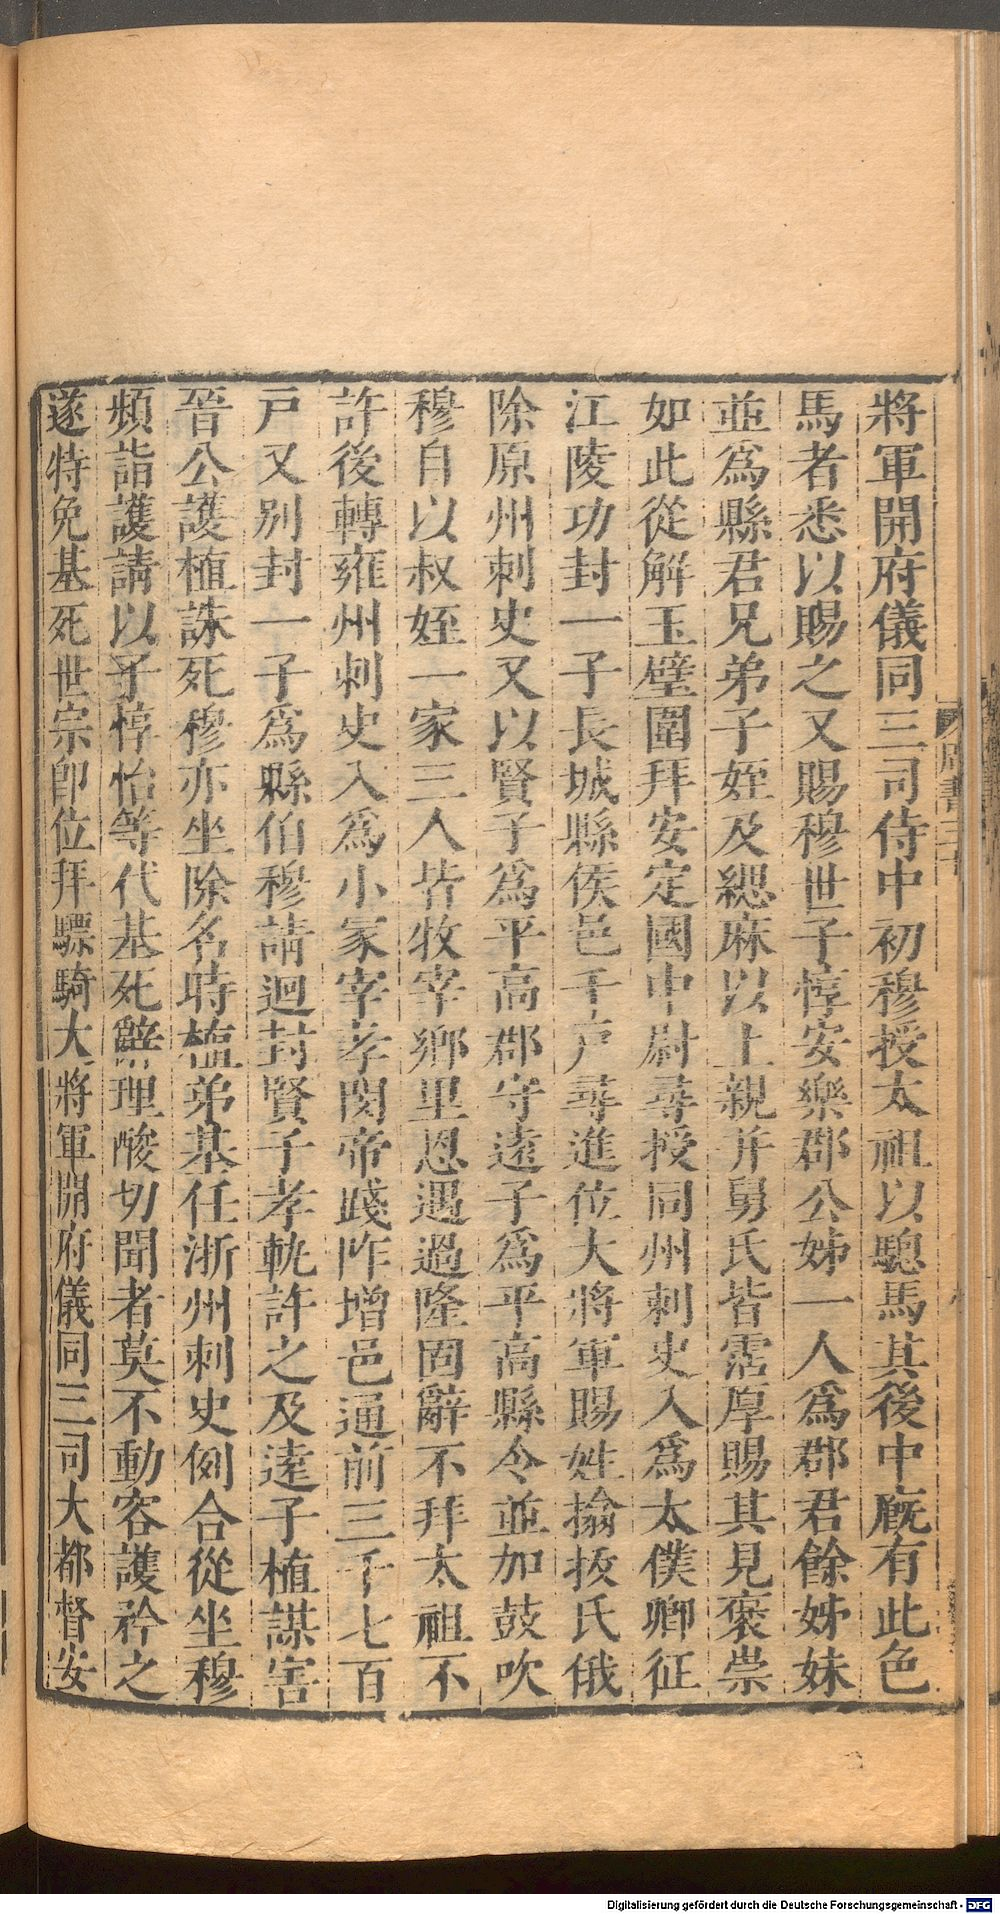 將軍開府儀同三司侍中初穆授太祖以驄馬其後中廐有此色
馬者悉以賜之又賜穆世子惇安樂郡公姊一人爲郡君餘姊妹
並爲縣君兄弟子姪及緦麻以上親并舅氏皆霑厚賜其見褒崇
如此從解玉壁圍拜安定國中尉尋授同州刺史入爲太僕卿征
江陵功封一子長城縣侯邑千户尋進位大將軍賜姓搚拔氏俄
除原州刺史又以賢子爲平高郡守遠子爲平高縣令並加鼓吹
穆自以叔姪一家三人皆牧宰鄉里恩遇過隆固辭不拜太祖不
許後轉雍州刺史入爲小冢宰孝閔帝踐阼增邑通前三千七百
戸又别封一子爲縣伯穆請迴封賢子孝軌許之及遠子植謀害
晉公護植誅死穆亦坐除名時植弟基任浙州刺史例合從坐穆
頻詣護請以子惇怡等代基死辭理酸切聞者莫不動容護矜之
遂特免基死世宗卽位拜驃騎大將軍開府儀同三司大都督安
周書三十
Digitalisierung gefördert durch die Deutsche Forschungsgemeinschaft - DFG